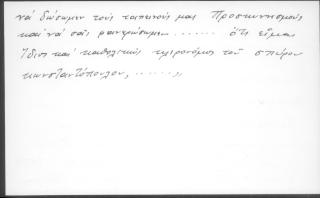 νά δώσωμεν τούς ταπεινούς μας Προσκυνησμούς
καί νά σᾶς φανερώσωμεν ....... ὅτι εἶμαι
ἴδιος καί καθολικός κληρονόμος τοῦ σπύρου
κωνσταντόπουλου, ......,,